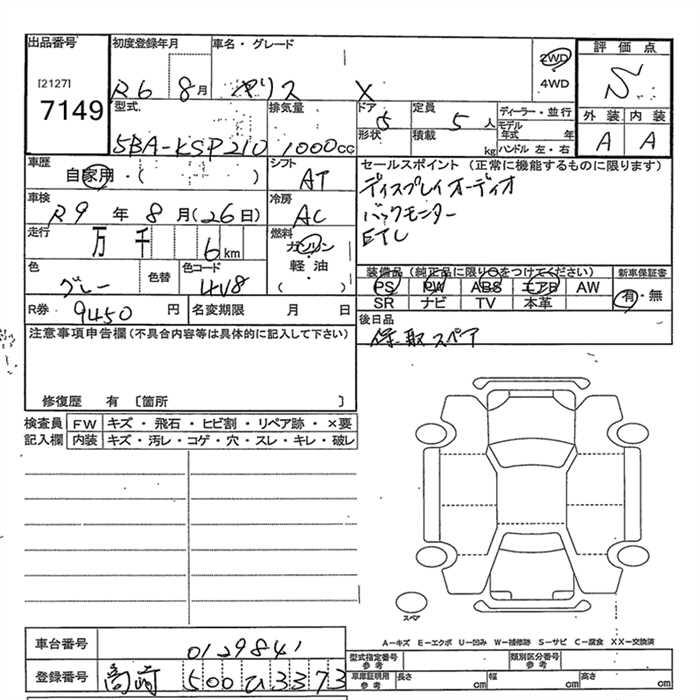 出品番号 初度登録年月 車名・グレード
[2127] R6 8月 ヤリス X 2WD 評価点
7149 4WD S
型式 排気量 ドア 定員 ディーラー・並行 外装 内装
5BA-KSP210 1000CC 5 5人 モデル年式 年 A A
形状 積載 kg ハンドル 左・右
車歴 シフト セールスポイント (正常に機能するものに限ります)
自家用・( ) AT ディスプレイオーディオ
車検 冷房 バックモニター
R9年8月(26日) AC ETC
走行 燃料
万 千 6 km ガソリン
色 色替 色コード 軽・油 装備品 (純正品に限り○をつけてください) 新車保証書
グレー 4V8 ( ) PS PW ABS エアB AW 有・無
SR ナビ TV 本革
R券 9450 円 名変期限 月 日 後日品
注意事項申告欄(不具合内容等は具体的に記入して下さい) 保、取、スペア
修復歴 有 〔箇所 〕
検査員 FW キズ・飛石・ヒビ割・リペア跡・×要
記入欄 内装 キズ・汚レ・コゲ・穴・スレ・キレ・破レ
スペア
A－キズ E－エクボ U－凹み W－補修跡 S－サビ C－腐食 XX－交換済
車台番号 0129841 型式指定番号 参考 類別区分番号 参考
登録番号 高崎 500 ひ 3373 車庫証明用 参考 長さ cm 幅 cm 高さ cm